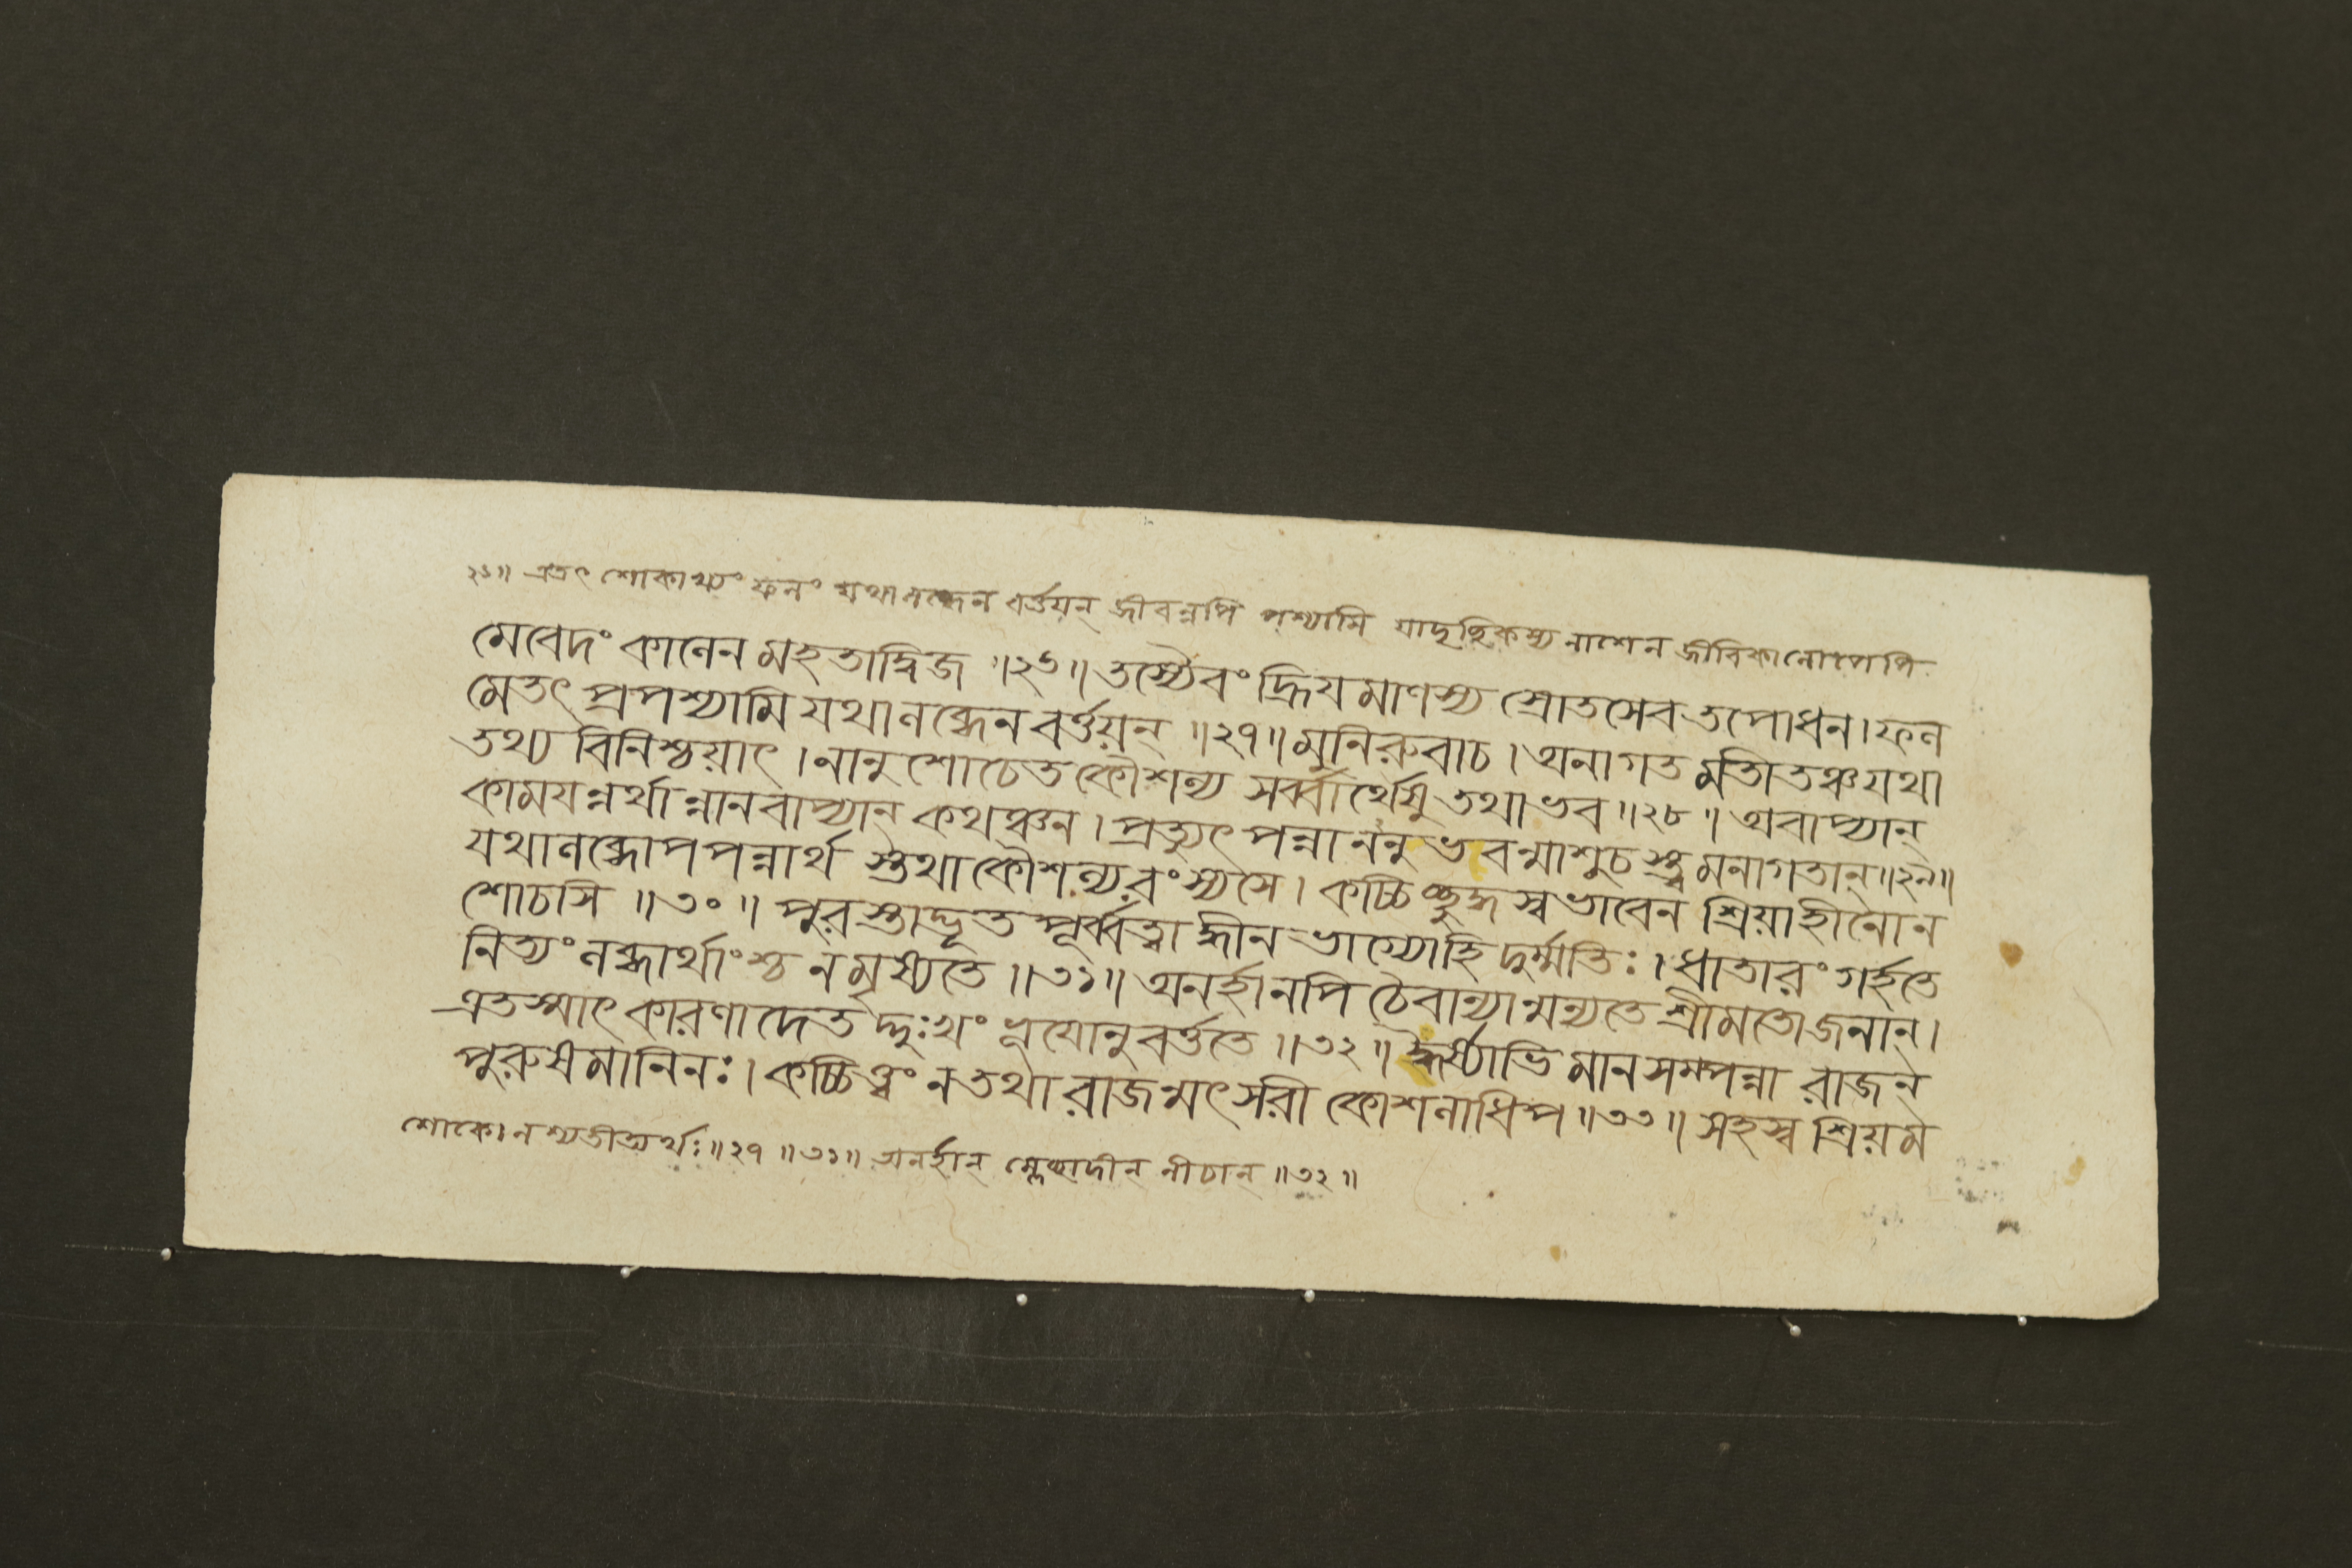 ২১॥ এতৎ শোকাখ্যং ফলং যথালব্ধেন বর্ত্তয়ন্ জীবন্নপি পশ্যামি যাদৃচ্ছিকস্য নাশেন জীবিকালোপেপি
মেবেদং কালেন মহতাদ্বিজ ॥২৬॥ তস্যৈবং হ্রিযমাণস্য স্রোতসেব তপোধন। ফল
মেতৎ প্রপশ্যামি যথালব্ধেন বর্ত্তয়ন্ ॥২৭॥ মুনিরুবাচ। অনাগত মতীতঞ্চ যথা
তথ্য বিনিশ্চয়াৎ। নানুশোচেত কৌশল্য সর্ব্বার্থেষু তথা ভব ॥২৮॥ অবাপ্যান্
কাময়ন্নর্থান্নানবাপ্যান্ কথঞ্চন। প্রত্যুৎপন্নাননুভবন্মাশুচস্ত্বমনাগতান্॥২৯॥
যথালব্ধোপপন্নার্থ স্তথা কৌশল্য রংস্যসে। কচ্চিচ্ছুদ্ধস্বভাবেন শ্রিয়াহীনোন
শোচসি ॥৩০॥ পুরস্তাদ্ভূতপূর্ব্বত্বাদ্ধীনভাগ্যোহি দুর্ম্মতিঃ। ধাতারং গর্হতে
নিত্যং লব্ধার্থাংশ্চ ন মৃষ্যতে ॥৩১॥ অনর্হানপি চৈবান্যান্মন্যতে শ্রীমতো জনান্।
এতস্মাৎ কারণাদেতদ্দুঃখং ভূযোনুবর্ত্ততে ॥৩২॥ ঈর্ষ্যাভিমানসম্পন্না রাজন্
পুরুষমানিনঃ। কচ্চিত্ত্বং ন তথা রাজন্মৎসরী কোশলাধিপ ॥৩৩॥ সহস্ব শ্রিয়ম
শোকো নশ্যতীত্যর্থঃ॥২৭॥ ॥৩১॥ অনর্হান্ ম্লেচ্ছাদীন্ নীচান্ ॥৩২॥